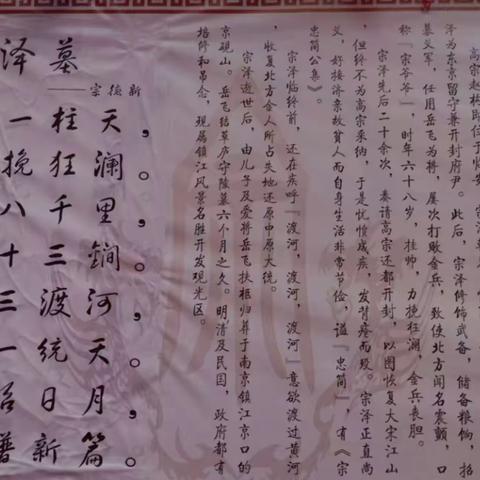 泽墓
——宗德新
一柱天，
挽狂澜。
八千里，
十三锏。
三渡河，
一统天。
日月，
谱新篇。
高宗赵构即位于临安
泽为东京留守兼开封府尹。此后，宗泽修饬武备，储备粮饷，招
募义军，任用岳飞为将，屡次打败金兵，致使北方闻名震颤，口
称『宗爷爷』，时年六十八岁，挂帅，力挽狂澜，金兵丧胆。
宗泽先后二十余次，奏请高宗还都开封，以图恢复大宋江山
但终不为高宗采纳，于是忧愤成疾，发背疽而殁。宗泽正直尚
义，好接济亲故贫人而自身生活非常节俭，谥『忠简』，有《宗
忠简公集》
宗泽临终前，还在疾呼『渡河，渡河，渡河』意欲渡过黄河
，收复北方金人所占失地还原中原大统。
宗泽逝世后，由儿子及爱将岳飞扶柩归葬于南京镇江京口的
京岘山。岳飞结草庐守陵墓六个月之久。明清及民国，政府都有
培修和吊念，现属镇江风景名胜开发观光区。